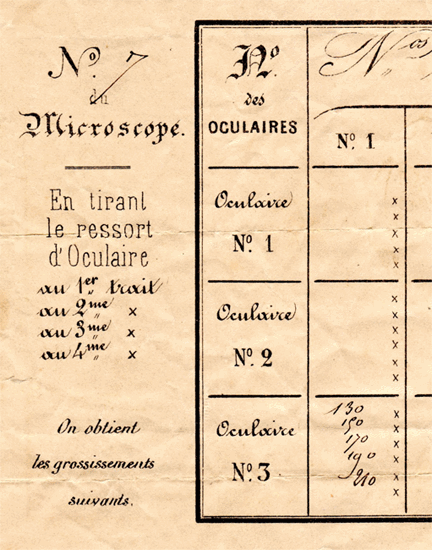 Nº. 7
du
Microscope.
En tirant
le ressort
d'Oculaire
au 1er trait
au 2me " x
au 3me " x
au 4me " x
On obtient
les grossissements
suivants.
Nº.
des
OCULAIRES
Nos
Nº. 1
Oculaire
Nº. 1
x
x
x
x
x
Oculaire
Nº. 2
x
x
x
x
x
x
Oculaire
Nº. 3
130 x
150 x
170 x
190 x
210 x
x